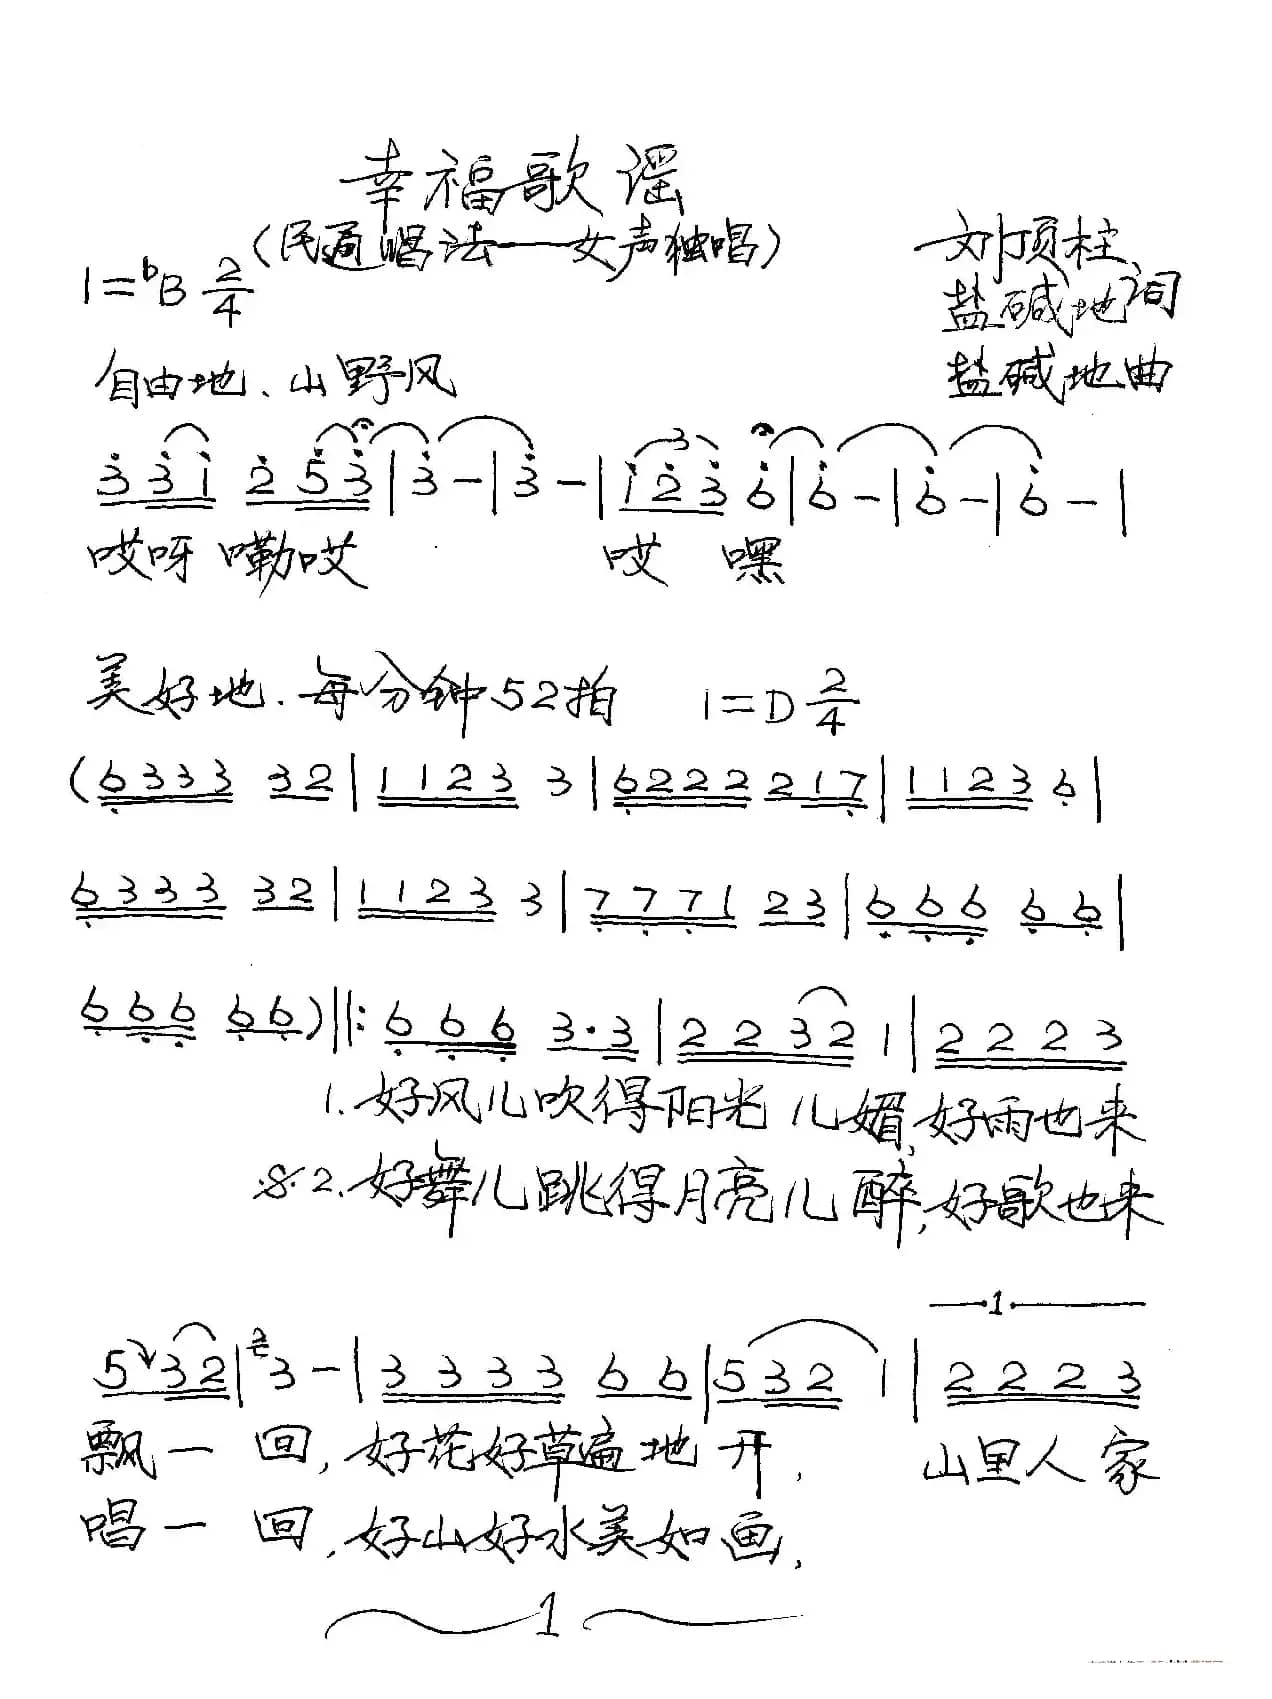 幸福歌谣
(民通唱法——女声独唱)
刘顶柱、
1=bB 2/4
盐碱地词
自由地、山野风
盐碱地曲
3 3 1 2 5 3 | 3 - | 3 - | 1 2 3 6 | 6 - | 6 - | 6 - |
3
哎呀 嘞哎 哎 嘿
美好地.每分钟52拍 1=D 2/4
(6333 32 | 1123 3 | 6222 217 | 1123 6 |
6333 32 | 1123 3 | 7771 23 | 666 66 |
666 66) ‖: 666 3·3 | 2232 1 | 2223
1.好风儿吹得阳光儿媚,好雨也来
※2.好舞儿跳得月亮儿醉,好歌也来
1
5 32 | 2 3 - | 3333 66 | 532 1 | 2223
飘一 回,好花好草遍地开, 山里人家
唱一 回,好山好水美如画,
1